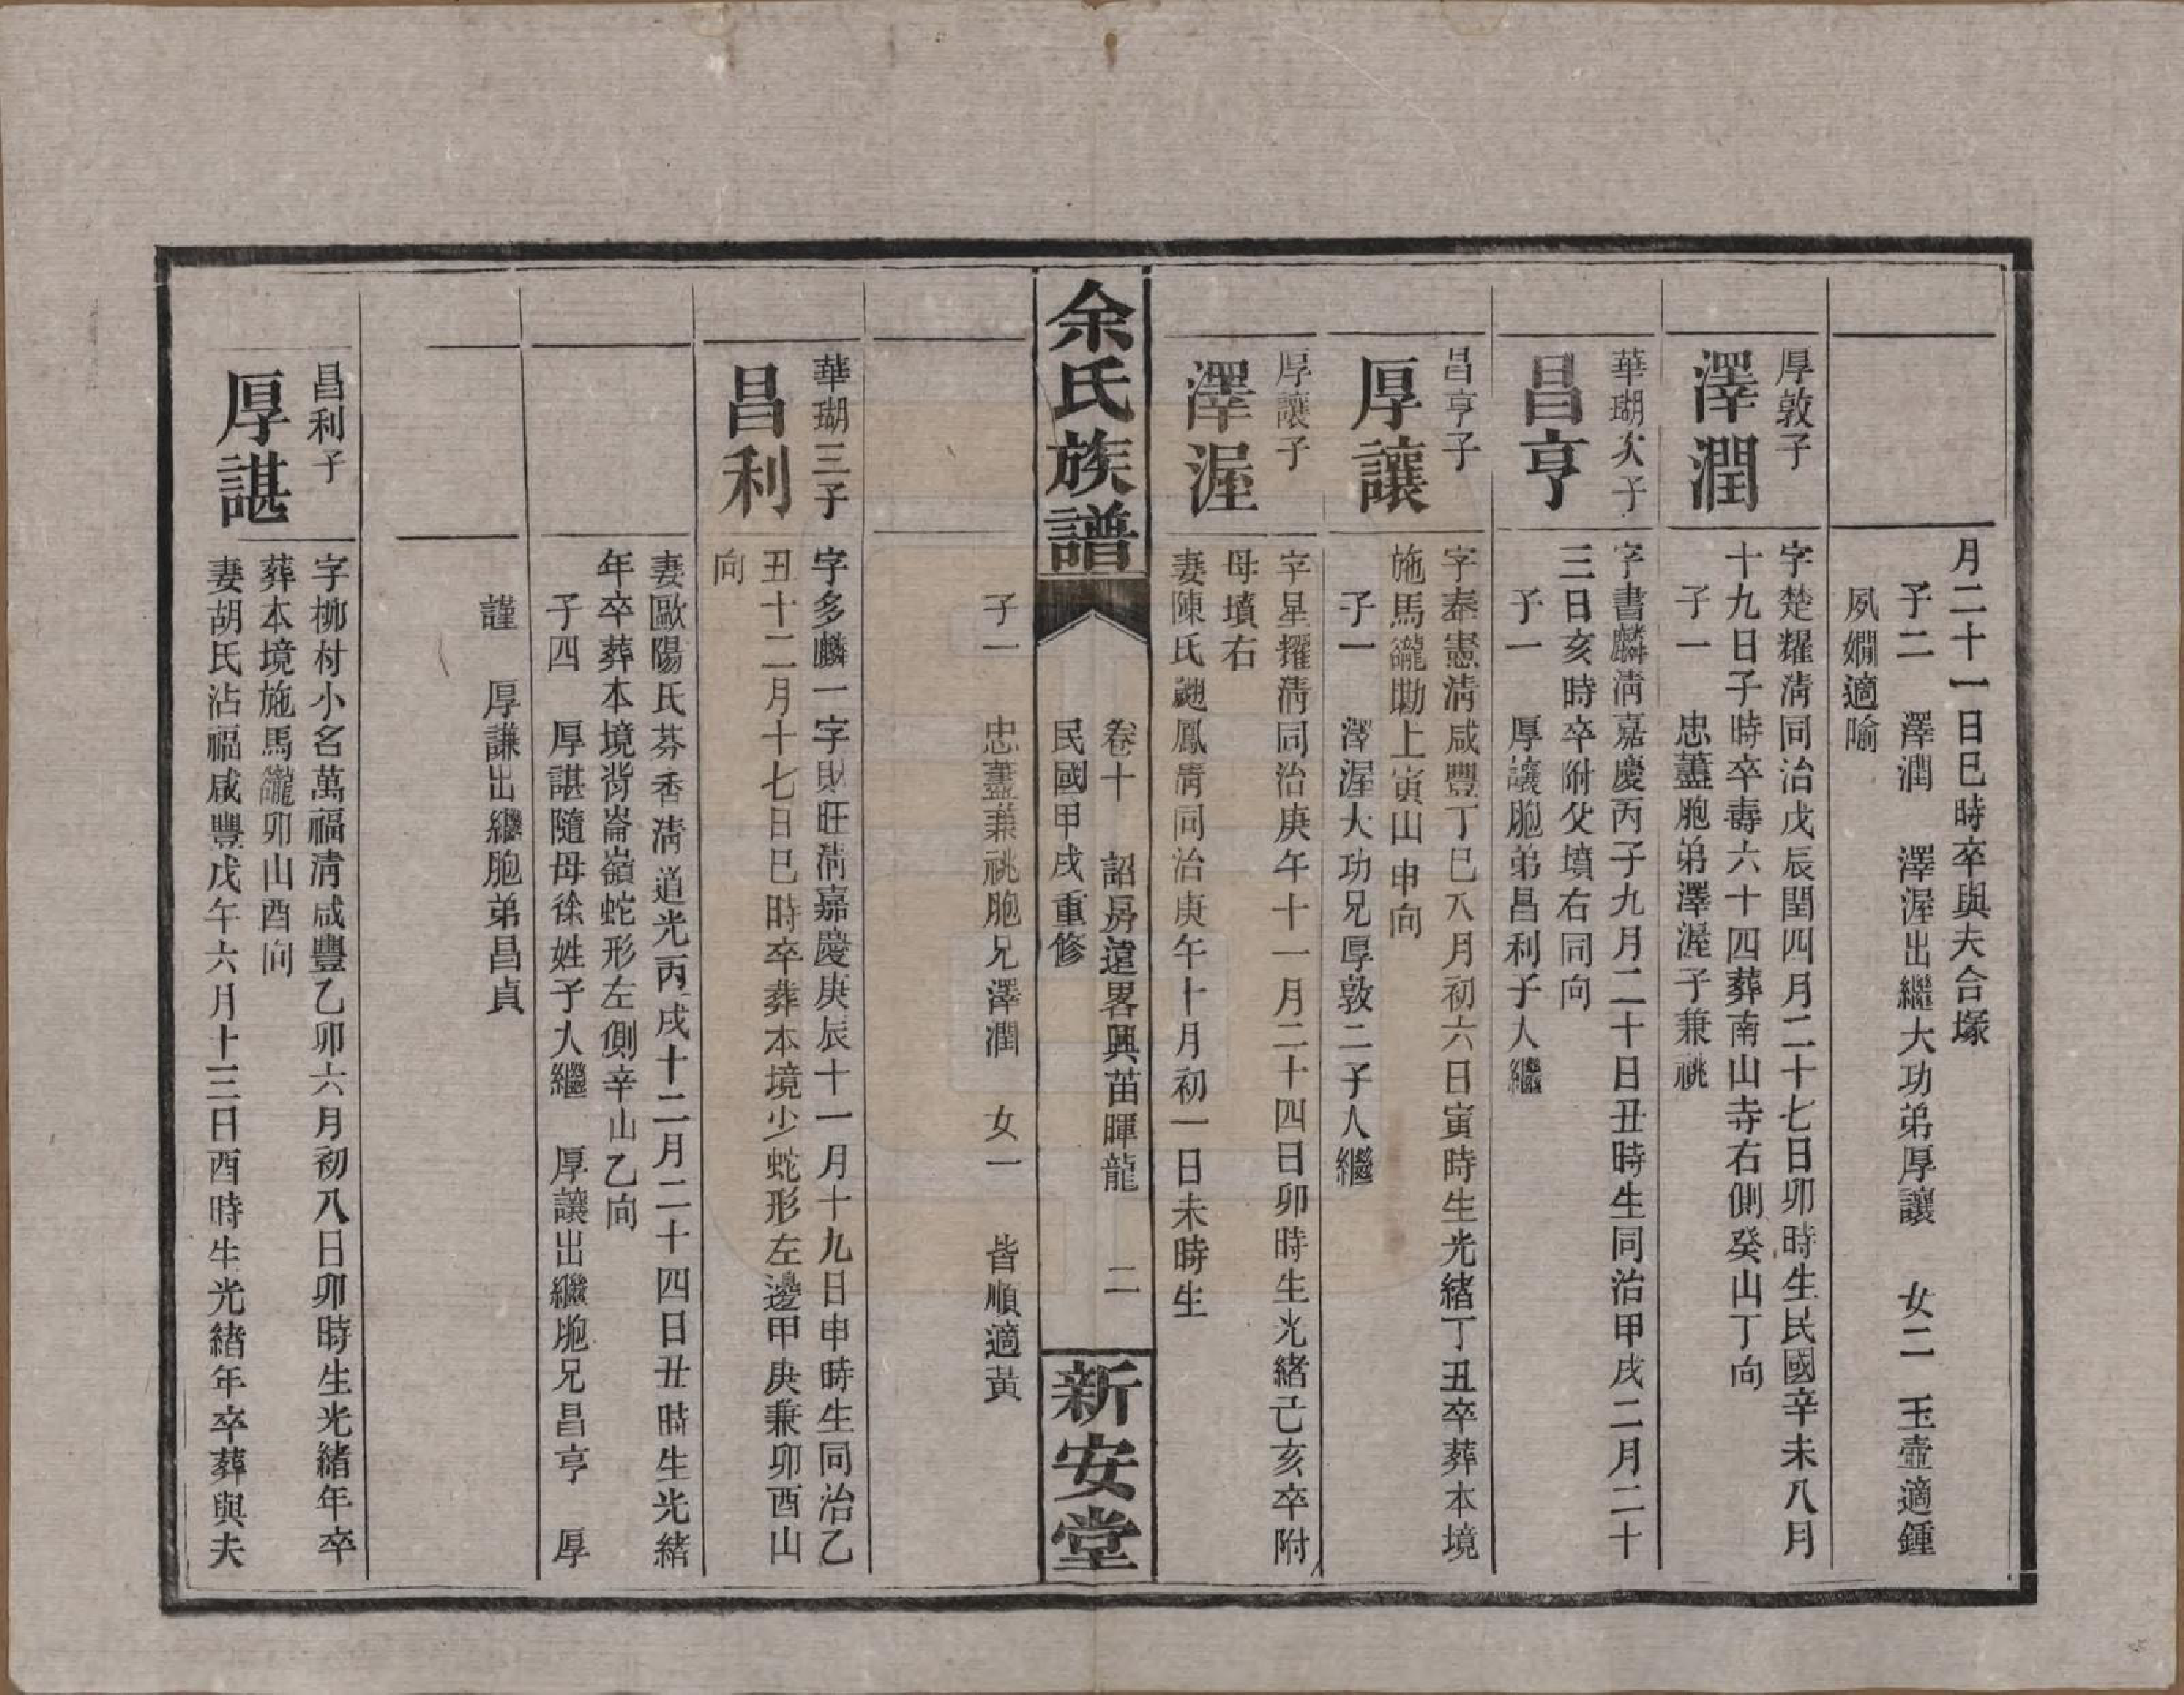 月二十一日巳時卒與夫合塚
子二　澤潤　澤渥出繼大功弟厚讓　女二　玉壺適鍾
夙嫺適喻
厚敦子
澤潤
字楚耀清同治戊辰閏四月二十七日卯時生民國辛未八月
十九日子時卒壽六十四葬南山寺右側癸山丁向
子一　忠藎胞弟澤渥子兼祧
華瑚次子
昌亨
字書麟清嘉慶丙子九月二十日丑時生同治甲戌二月二十
三日亥時卒附父墳右同向
子一　厚讓胞弟昌利子人繼
昌亨子
厚讓
字泰憲清咸豐丁巳八月初六日寅時生光緒丁丑卒葬本境
施馬巃坳上寅山申向
子一　澤渥大功兄厚敦二子人繼
厚讓子
澤渥
字星耀清同治庚午十一月二十四日卯時生光緒己亥卒附
母墳右
妻陳氏翽鳳清同治庚午十月初一日未時生
余氏族譜
卷十　詔房遠畧興苗暉龍　二
民國甲戌重修
新安堂
子一　忠藎兼祧胞兄澤潤　女一　皆順適黃
華瑚三子
昌利
字多麟一字財旺清嘉慶庚辰十一月十九日申時生同治乙
丑十二月十七日巳時卒葬本境少蛇形左邊甲庚兼卯酉山
向
妻歐陽氏芬香清道光丙戌十二月二十四日丑時生光緒
年卒葬本境背崙嶺蛇形左側辛山乙向
子四　厚諶隨母徐姓子人繼　厚讓出繼胞兄昌亨　厚
謹　厚謙出繼胞弟昌貞
昌利子
厚諶
字柳村小名萬福清咸豐乙卯六月初八日卯時生光緒年卒
葬本境施馬巃卯山酉向
妻胡氏沾福咸豐戊午六月十三日酉時生光緒年卒葬與夫